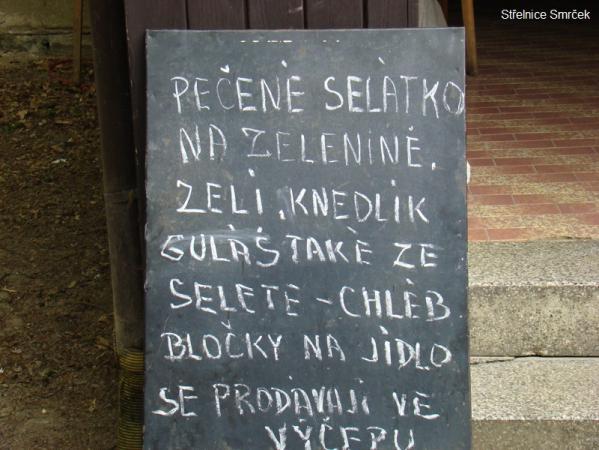 Střelnice Smrček
PEČENÉ SELÁTKO
NA ZELENINĚ,
ZELÍ, KNEDLÍK
GULÁŠ TAKÉ ZE
SELETE - CHLÉB
BLOČKY NA JÍDLO
SE PRODÁVAJÍ VE
VÝČEPU